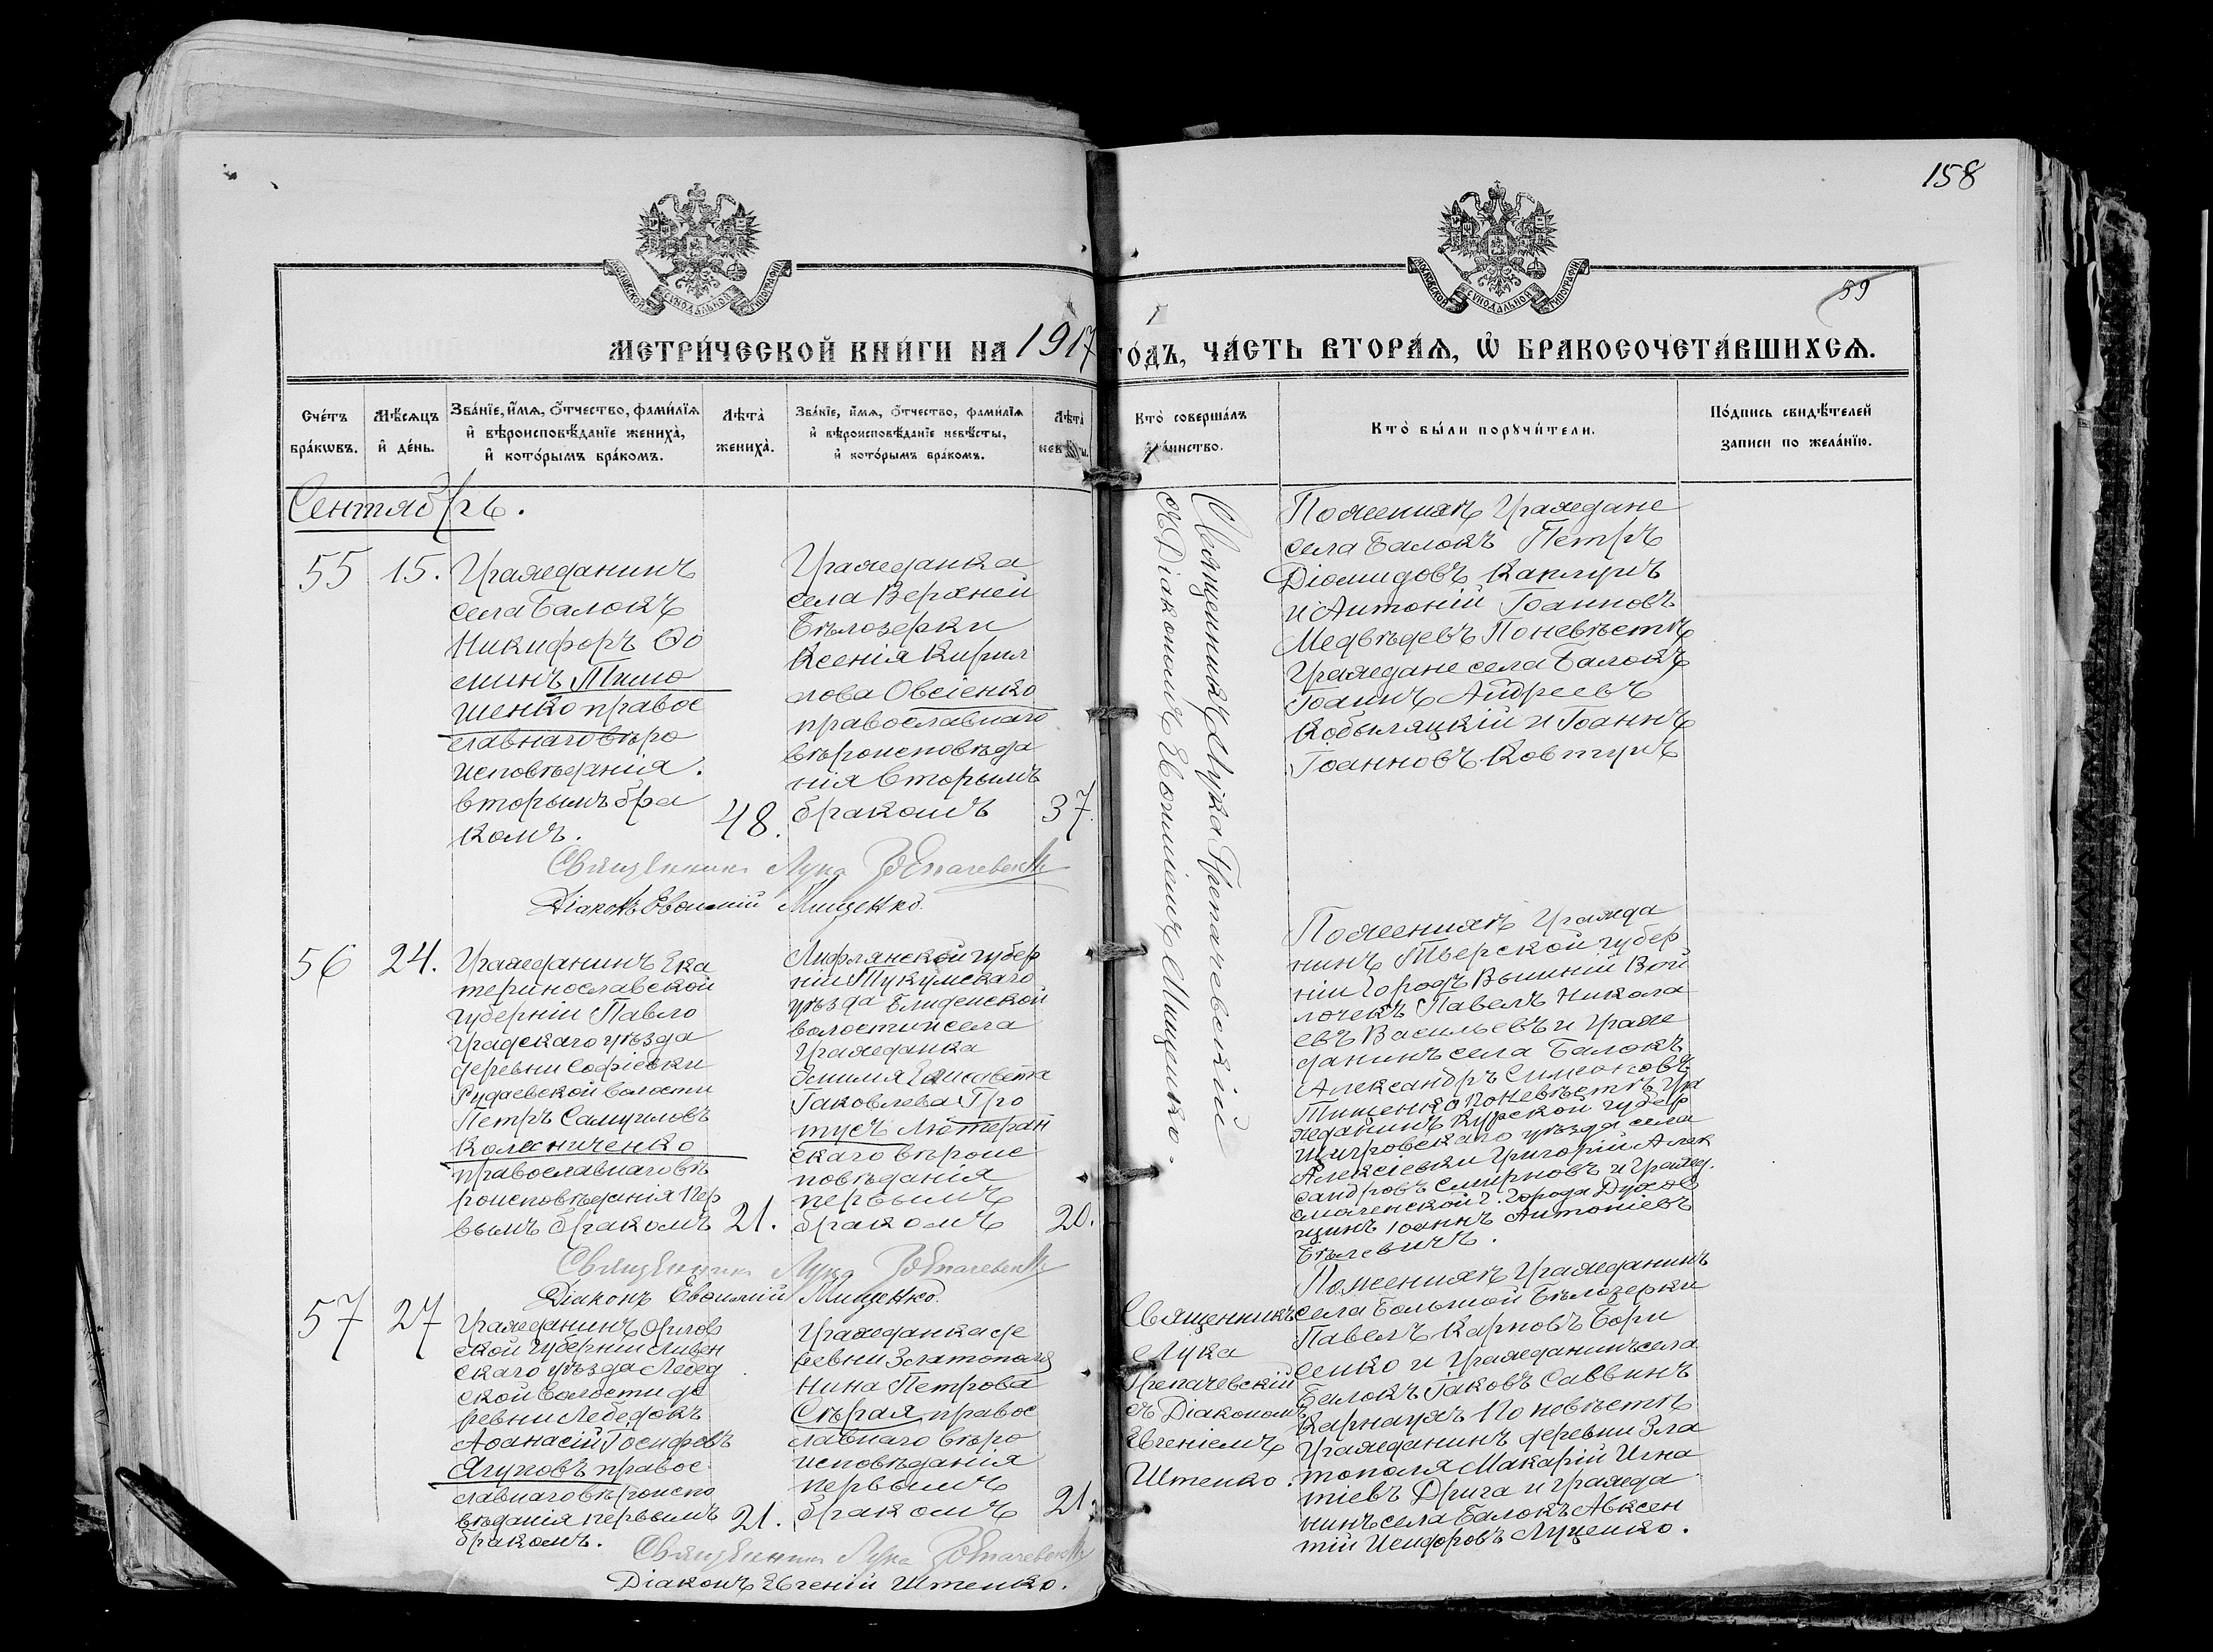 158
59
МОСКОВСКОЙ СѴНОДАЛЬНОЙ ТИПОГРАФІИ
МОСКОВСКОЙ СѴНОДАЛЬНОЙ ТИПОГРАФІИ
МЕТРИ́ЧЕСКОЙ КНИ́ГИ НА 1917 ГО́ДЪ, ЧА́СТЬ ВТОРА́Ѧ, Ѡ҆ БРАКОСОЧЕТА́ВШИХСѦ.
Сче́тъ бра́кѡвъ.
Мѣ́сяцъ и҆ де́нь.
Зва́нїе, и҆́мѧ, ѻ҆́тчество, фами́лїѧ
и҆ вѣроисповѣ́данїе жениха̀,
и҆ кото́рымъ бра́комъ.
Лѣта̀ жениха̀.
Зва́нїе, и҆́мѧ, ѻ҆́тчество, фами́лїѧ
и҆ вѣроисповѣ́данїе невѣ́сты,
и҆ кото́рымъ бра́комъ.
Лѣта̀
Кто̀ соверша́лъ
та́инство.
Кто̀ бы́ли порꙋчи́тели.
По́дпись свидѣ́телей
записи по жела́нїю.
Сентябрь.
55
15.
Гражданинъ
села Балокъ
Никифоръ Ѳо
минъ Тимо
шенко правос
славнаго вѣро
исповѣданія.
вторымъ бра
комъ.
48.
Гражданка
села Верхней
Бѣлозерки
Ксенія Кирил
лова Овсіенко
православнаго
вѣроисповѣда
нія вторымъ
бракомъ
37.
Священникъ Лука Грепачевскій
съ Діакономъ Евѳиміемъ Мищенко.
По женихѣ Граждане
села Балокъ Петръ
Діомидовъ Каплунъ
и Антоній Іоанновъ
Медвѣдевъ По невѣстѣ
Граждане села Балокъ
Іоаннъ Андреевъ
Кобыляцкій и Іоаннъ
Іоанновъ Ковтунъ
Священникъ Лука Грепачевскій
Діаконъ Евѳимій Мищенко.
56
24.
Гражданинъ Ека
теринославской
губерніи Павло
градскаго уѣзда
деревни Софіевки
волости
Петръ Самуиловъ
Колесниченко
православнаго вѣ
роисповѣданія пер
вымъ бракомъ
21.
Лифлянской губер
ніи Тукумскаго
уѣзда
волости села
Гражданка
Эмилія Елисавета
Іаковлева Гро
тусъ Лютеран
скаго вѣроис
повѣданія
первымъ
бракомъ
20.
По женихѣ Гражда
нинъ Тверской губер
ніи городъ Вышній Вой
лочекъ Павелъ Никола
евъ Васильевъ и Граж
данинъ села Балокъ
Александръ Симоновъ
Тищенко По невѣстѣ Гра
жданинъ Курской губер
Щигровскаго уѣзда села
Алексіевки Григорій Алек
сандровъ Смирновъ и Гражд.
Смоленской г. города Духов
щинъ Іоаннъ Антоніевъ
Бѣлевичъ.
Священникъ Лука Грепачевскій
Діаконъ Евѳимій Мищенко.
57
27
Гражданинъ Орлов
ской губерніи Ливен
скаго уѣзда Лебед
ской волости де
ревни Лебедокъ
Аѳанасій Іосифовъ
Ягуповъ правос
славнаго вѣроиспо
вѣданія первымъ
бракомъ.
21.
Гражданка де
ревни Златополя
Нина Петрова
Сѣрая правос
лавнаго вѣро
исповѣданія
первымъ
бракомъ
21.
Священникъ
Лука
Грепачевскій
съ Діакономъ
Евгеніемъ
Штепко.
По женихѣ Гражданинъ
села Большой Бѣлозерки
Павелъ Карповъ Бори
сенко и Гражданинъ села
Балокъ Іаковъ Саввинъ
Карнаухъ По невѣстѣ
Гражданинъ деревни Зла
тополя Макарій Игна
тіевъ Дрига и Гражда
нинъ села Балокъ Авксен
тій Исидоровъ Луценко.
Священникъ Лука Грепачевскій
Діаконъ Евгеній Штепко.